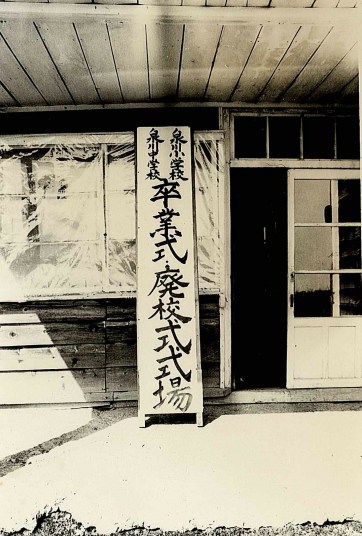 泉川小学校
泉川中学校
卒業式・廃校式式場